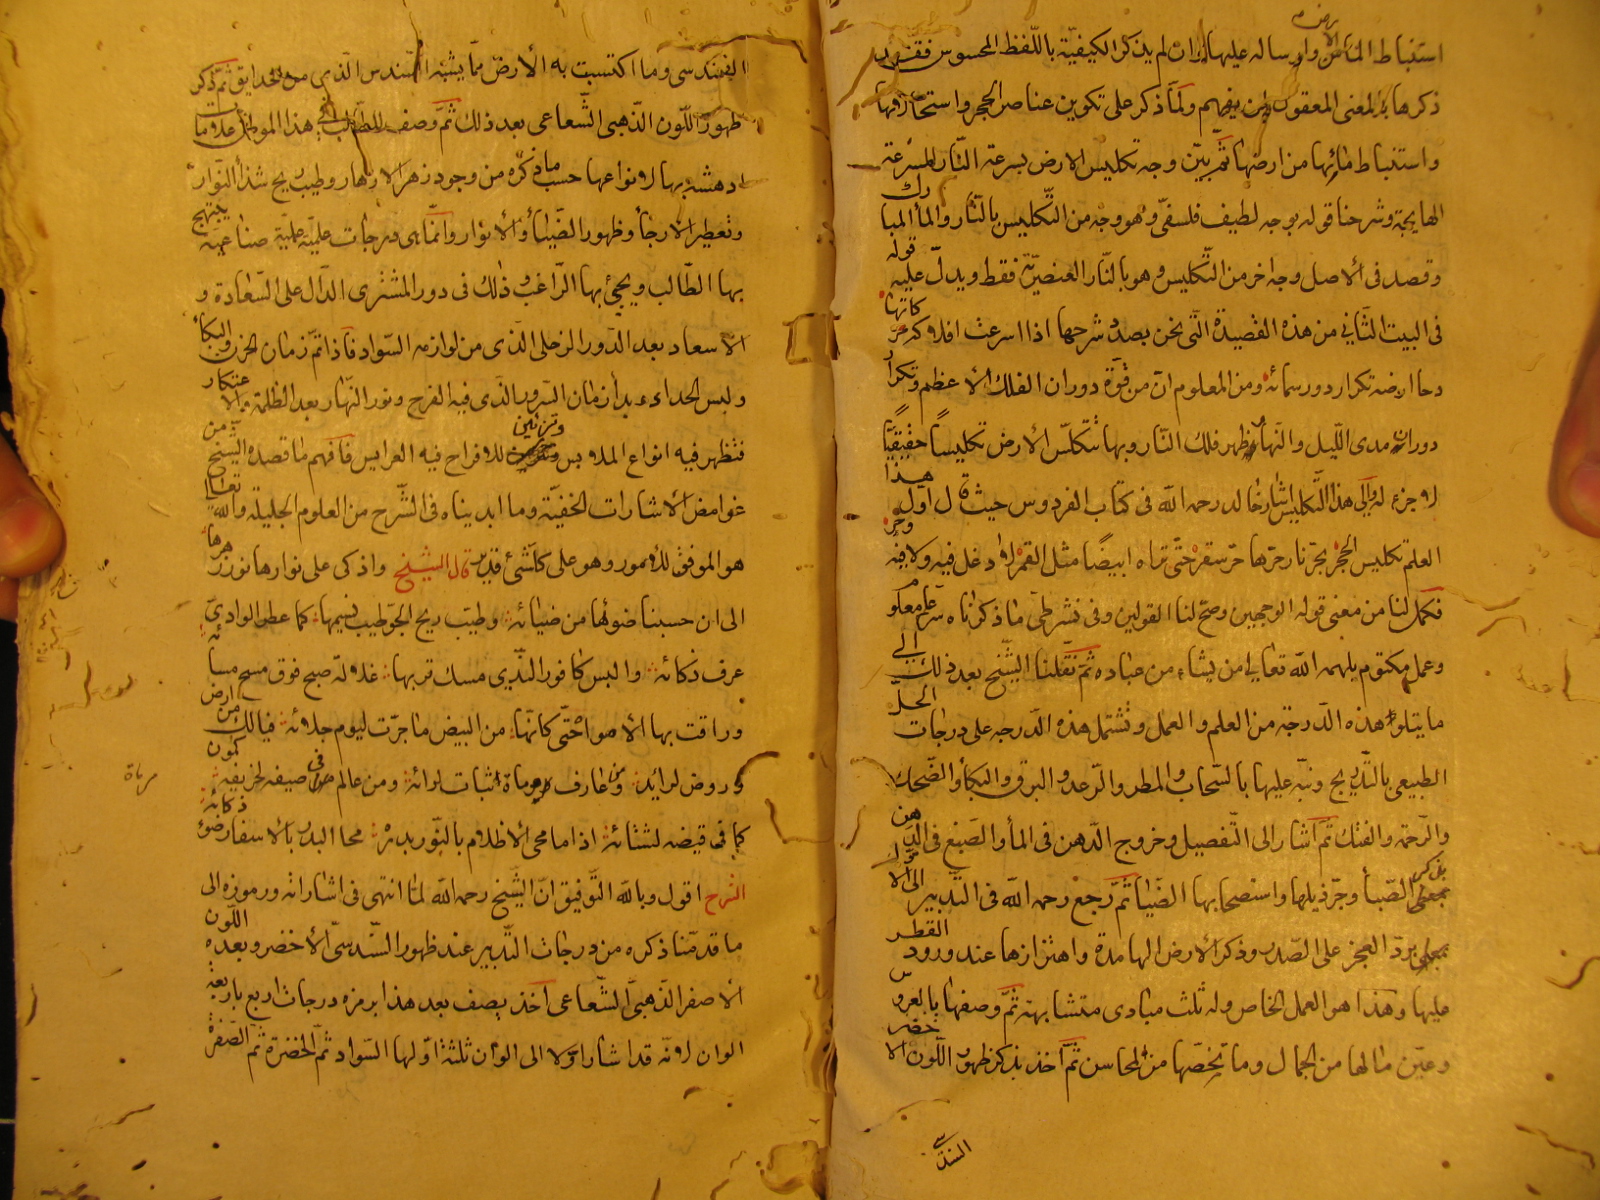 استنباط الماء من وارساله عليها وان لم يذكر الكيفيّة باللّفظ المحسوس فقد
ذكرها بالمعنى المعقول لمن يفهم ولمّا ذكر على تكوين عناصر الحجر واستخارتها
واستنباط مائها من ارضها ثمّ بيّن وجه تكليس الارض بسرعة النّار المسرعة
الهايجة وشرحنا قوله بوجه لطيف فلسفىّ وهو وجه من التّكليس بالنّار والماء المبارك
وقصد فى الاصل وجه اخر من التّكليس وهو بالنّار العنصريّة فقط ويدلّ عليه قوله
فى البيت الثّانى من هذه القصيدة الّتى نحن بصدد شرحها اذا اسرعت افلاك حركاتها
دحا ارضه تكرار دور سمائه ومن المعلوم انّ من قوّة دوران الفلك الاعظم وتكرار
دورانه مدى اللّيل والنّهار ظهر فلك النّار وبها تتكلّس الارض تكليسا حقيقيّا
لا جزء له والى هذا التّكليس اشار خالد رحمه الله فى كتاب الفردوس حيث قال اول هذا
العلم تكليس الحجر بحرّ نار حرّها حرّ سقر حتّى تراه ابيضا مثل القمر لا دغل فيه ولا فيه وخر
فكمل لنا من معنى قوله الوجهين وصحّ لنا القولين وفى نشر طىّ ما ذكرناه سرّ علم معلوم
وعمل مكتوم يلهمه الله تعالى من يشاء من عباده ثمّ نقلنا الشّيخ بعد ذلك الى
ما يتلو هذه الدّرجة من العلم والعمل وتشتمل هذه الدّرجة على درجات الحلّ
الطبيعى بالتّدريج ونبّه عليها بالسّحاب والمطر والرّعد والبرق والبكاء والضّحك
والرّحمة والفتك ثمّ اشار الى التّفصيل وخروج الدّهن فى الماء والصّبغ فى الدّهن
بذكر الصّبا وجرّ ذيلها واستصحابها الضّيا ثمّ رجع رحمه الله فى التّدبير الى الاوّل
بردّ العجز على الصّدر وذكر الارض الهامدة واهتزازها عند ورود القطر
عليها وهذا هو العمل الخاص وله ثلث مبادى متشابهة ثمّ وصفها بالعروس
وعيّن ما لها من الجمال وما يخصّها من المحاسن ثمّ اخذ بذكر ظهور اللّون الاخضر
السّندسى
السندسى وما اكتسبت به الارض ممّا يشبه السّندس الّذى من الحدايق ثمّ ذكر
ظهور اللّون الذّهبى الشّعاعى بعد ذلك ثمّ وصف للطّالب فى هذا الموطن علامات
ادهشه بها لانواعها حسب ما ذكره من وجود زهر الازهار وطيب ريح شذا النّوار
وتعطير الارجاء وظهور الضّياء والانوار وانّما هى درجات علميّة عمليّة صناعيّة يبتهج
بها الطّالب ويحيى بها الرّاغب وذلك فى دور المشترى الدّال على السّعادة و
الاسعاد بعد الدّور الزحلى الّذى من لوازمه السّواد فاذا تمّ زمان الحزن والبكاء
ولبس الحداء بدأ زمان السّرور الّذى فيه الفرح ونور النّهار بعد الظلمة والاعتكار
فتظهر فيه انواع الملابس وتزيّن للافراح فيه العرايس فافهم ما قصده الشّيخ من
غوامض الاشارات الخفيّة وما ابديناه فى الشّرح من العلوم الجليلة والله تعالى
هو الموفق للامور وهو على كلّ شئ قدير قال الشيخ واذكى على نوارها نور زهرها
الى ان حسبنا ضوئها من ضيائه وطيّب ريح الجوّ طيب نسيمها كما عطر الوادى
عرف ذكائه والبس كافور النّدى مسك تربها غلالة صبح فوق مسح مسائه
وراقت بها الاضواء حتّى كانّها من البيض ما جرّت ليوم جلائه فيالك من ارض
وروض لرائد ومن عارف اثبات لرائه ومن عالم فى صيفه لخريفه كمون
كما فى قيضه لشتائه اذا ما محى الاظلام بالنّور بدره محا البدر بالاسفار ضوء ذكائه
الشرح اقول وبالله التّوفيق انّ الشّيخ رحمه الله لمّا انتهى فى اشاراته ورموزه الى
ما قدمنا ذكره من درجات التّدبير عند ظهور السّندسىّ الاخضر وبعده اللّون
الاصفر الذّهبى الشّعاعى اخذ يصف بعد هذا برمزه درجات اربع باربعة
الوان لانّه قد اشار اوّلا الى الوان ثلثة اوّلها السّواد ثمّ الخضرة ثمّ الصّفرة
مرماة